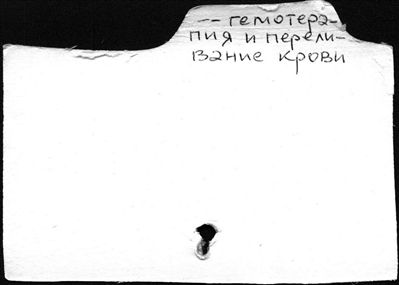 -- гемотера-
пия и перели-
вание крови